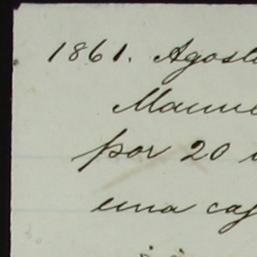 1861. Agosto
Manue
por 20
una caj